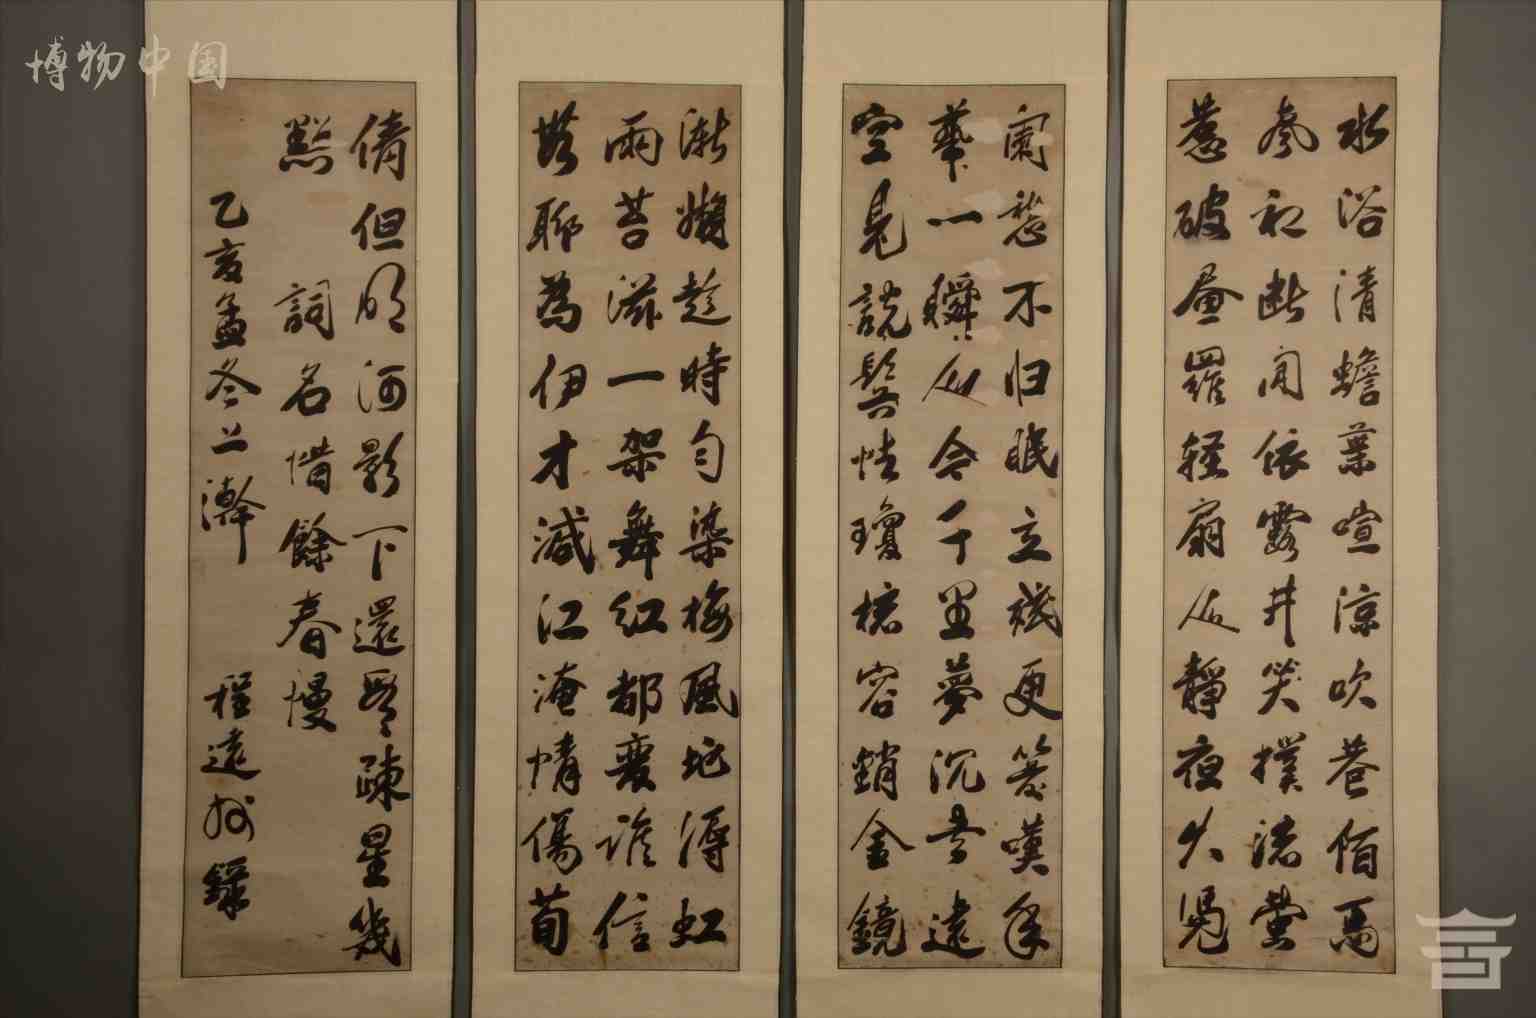 博物中国
水浴清蟾葉喧涼吹巷陌馬
声初断闲依露井笑撲流螢
惹破畫羅轻扇人靜夜久凭
阑愁不归眠立残更箭嘆年
華一瞬人今千里夢沉書遠
空見説鬓怯瓊梳容銷金鏡
漸懶趁時匀染梅風地溽虹
雨苔滋一架舞紅都變誰信
無聊為伊才減江淹情傷荀
倩但明河影下還看疎星幾
點 詞名惜餘春慢
乙亥孟冬上澣 程遠錄